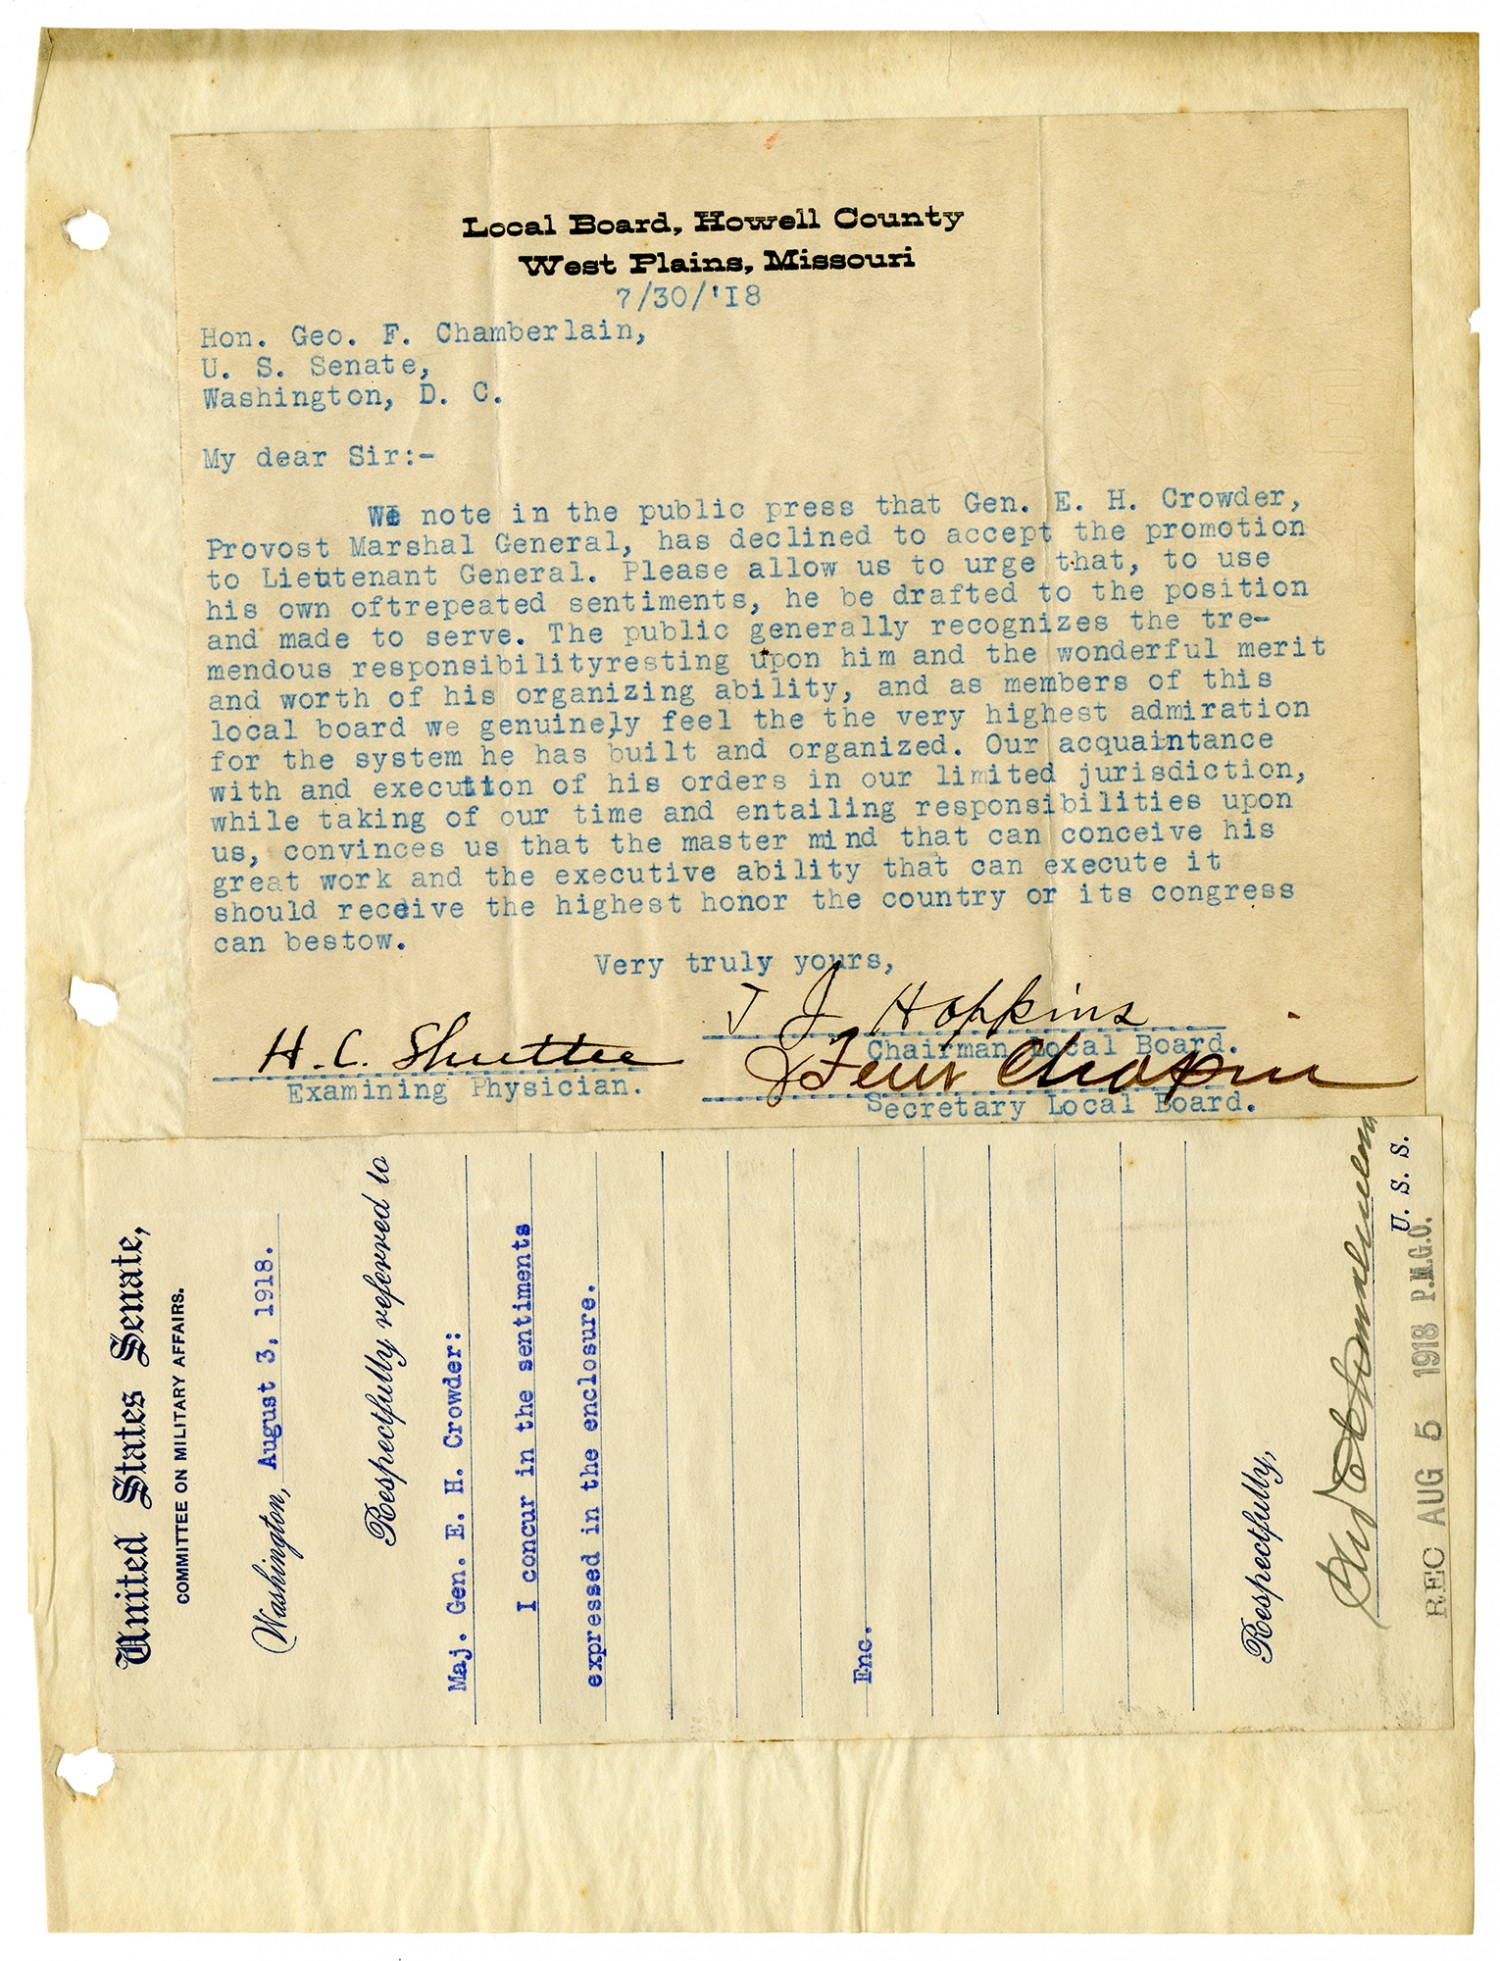 Local Board, Howell County
West Plains, Missouri
7/30/'18
Hon. Geo. F. Chamberlain,
U. S. Senate,
Washington, D. C.
My dear Sir:-
We note in the public press that Gen. E. H. Crowder,
Provost Marshal General, has declined to accept the promotion
to Lieutenant General. Please allow us to urge that, to use
his own oftrepeated sentiments, he be drafted to the position
and made to serve. The public generally recognizes the tre-
mendous responsibilityresting upon him and the wonderful merit
and worth of his organizing ability, and as members of this
local board we genuinely feel the the very highest admiration
for the system he has built and organized. Our acquaintance
with and execution of his orders in our limited jurisdiction,
while taking of our time and entailing responsibilities upon
us, convinces us that the master mind that can conceive his
great work and the executive ability that can execute it
should receive the highest honor the country or its congress
can bestow.
Very truly yours,
J Hopkins
Chairman Local Board.
H. C. Shuttee
Examining Physician.
Chapin
Secretary Local Board.
United States Senate,
COMMITTEE ON MILITARY AFFAIRS.
Washington, August 3, 1918.
Respectfully referred to
Maj. Gen. E. H. Crowder:
I concur in the sentiments
expressed in the enclosure.
Enc.
Respectfully,
U. S. S.
REC AUG 5 1918 P.M.G.O.